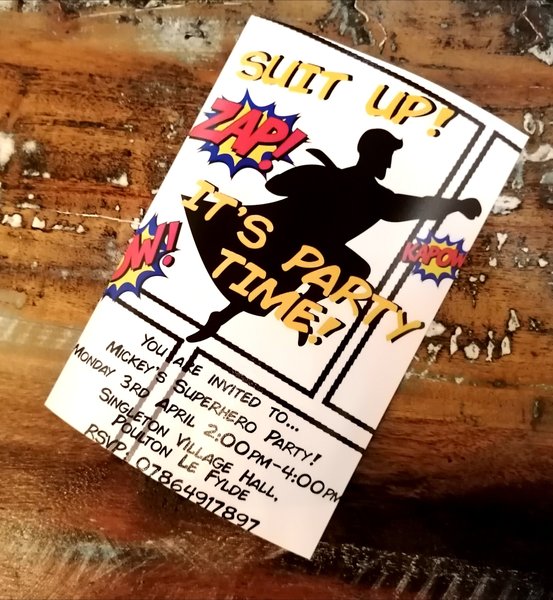 SUIT UP!
ZAP!
IT'S PARTY
TIME!
KAPOW
OW!
YOU ARE INVITED TO...
MICKEY'S SUPERHERO PARTY!
MONDAY 3RD APRIL 2:00PM-4:00PM
SINGLETON VILLAGE HALL,
POULTON LE FYLDE
RSVP: 07864917897